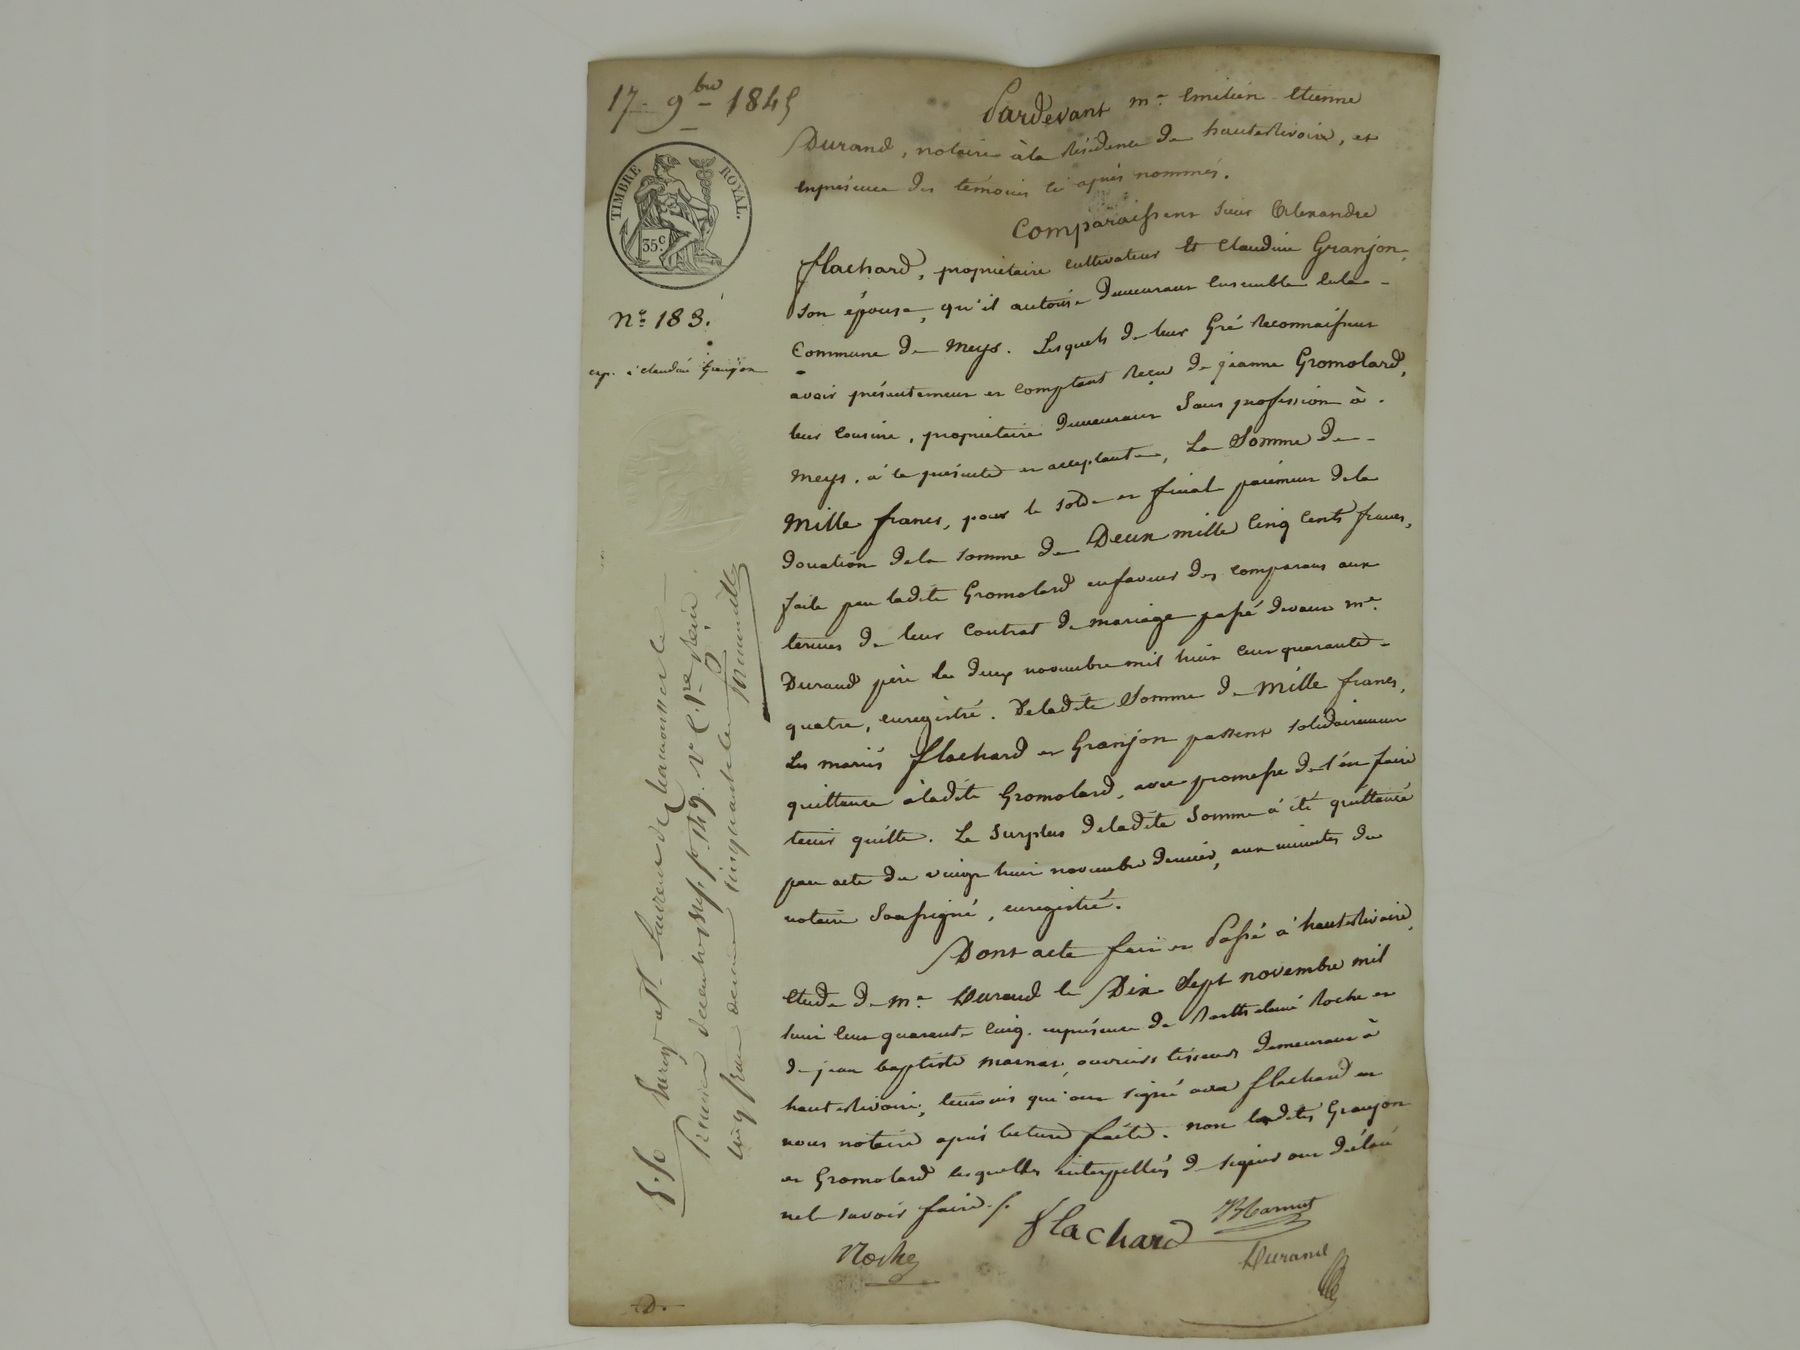 17 9bre 1845
TIMBRE ROYAL.
35c.
No. 183.
exp. à claudine Granjon
Pardevant me Emilien Etienne
Durand, notaire à la Résidence de hauterivoire, et
enprésence des témoins ci après nommés.
Comparaissent sieur Alexandre
flachard, propriétaire cultivateur et Claudine Granjon,
son épouse, qu'il autorise demeurant ensemble dela
Commune de Meys. Lesquels de leur Gré Reconnaissent
avoir présentement et comptant Reçu de jeanne Gromolard,
leur Cousine, propriétaire demeurant Sans profession à
Meys, à ce présente et acceptante, La Somme de
Mille francs, pour le solde et final paiement dela
donation dela somme de Deux mille Cinq Cents francs,
faite par ladite Gromolard enfaveur des comparans aux
termes de leur Contrat de mariage passé devant me
Durand père le deux novembre mil huit cent quarante
quatre, enregistré. Deladite Somme de Mille francs,
Les mariés flachard et Granjon passent solidairement
quittance àladite Gromolard, avec promesse de l'en faire
tenir quitte. Le surplus deladite Somme a été quittancé
par acte du vingt huit novembre dernier, aux minutes du
notaire Soussigné, enregistré.
Dont acte fait et Passé à hauterivoire,
étude de me Durand le Dix Sept novembre mil
huit cent quarante Cinq. enprésence de Barthelemi Roche et
de jean baptiste marnat, ouvriers tisseurs demeurant à
hauterivoire, témoins qui ont signé avec flachard et
nous notaire après lecture faite. non lesdites Granjon
et Gromolard lesquelles interpellées de signer ont déclaré
nele savoir faire./.
Roche
flachard
Marnat
Durand
D.
St Laurent de Chamousset le
cinquante